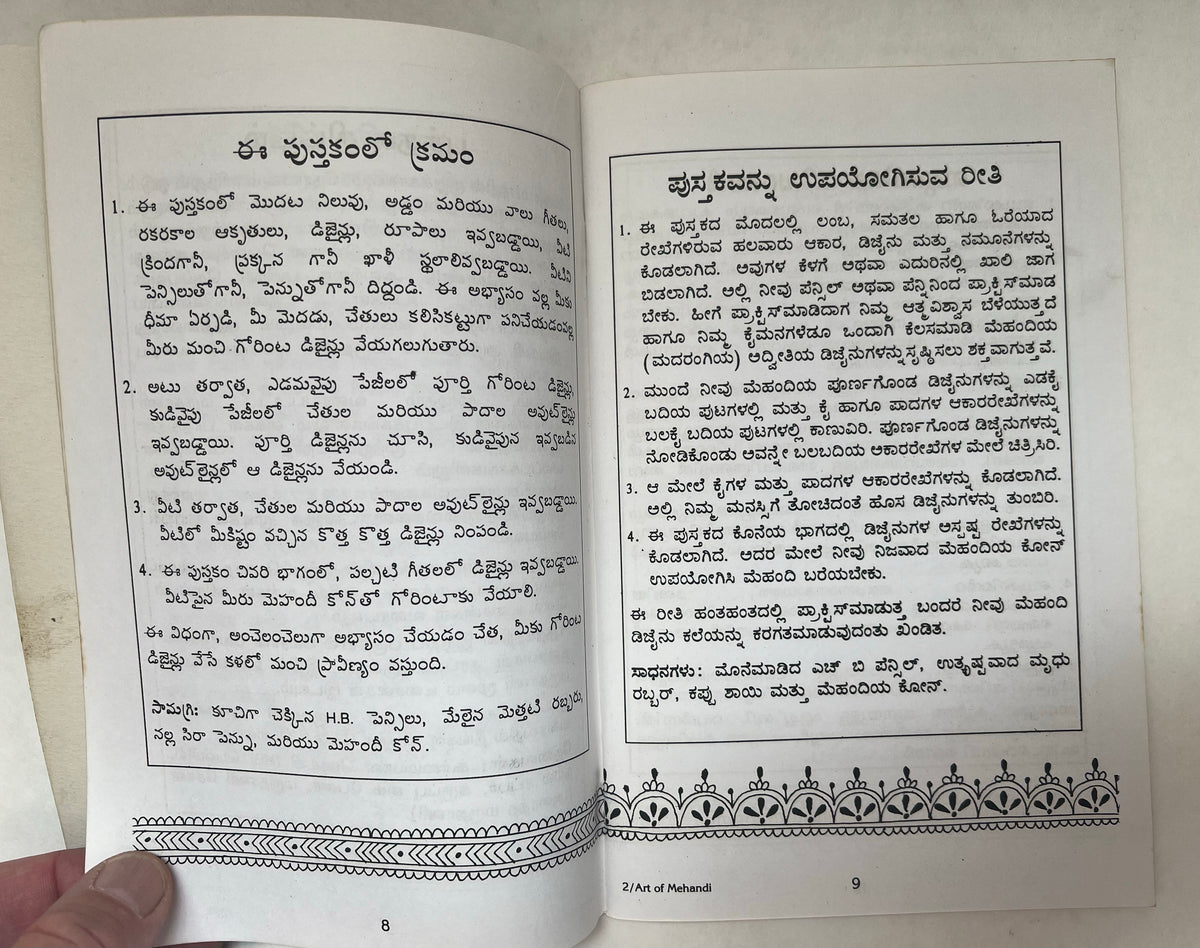 ఈ పుస్తకంలో క్రమం
1. ఈ పుస్తకంలో మొదట నిలువు, అడ్డం మరియు వాలు గీతలు,
రకరకాల ఆకృతులు, డిజైన్లు, రూపాలు ఇవ్వబడ్డాయి, వీటి
క్రిందగానీ, ప్రక్కన గానీ ఖాళీ స్థలాలివ్వబడ్డాయి. వీటిని
పెన్సిలుతోగానీ, పెన్నుతోగానీ దిద్దండి. ఈ అభ్యాసం వల్ల మీకు
ధీమా ఏర్పడి, మీ మెదడు, చేతులు కలిసికట్టుగా పనిచేయడంవల్ల
మీరు మంచి గోరింట డిజైన్లు వేయగలుగుతారు.
2. అటు తర్వాత, ఎడమవైపు పేజీలలో పూర్తి గోరింట డిజైన్లు,
కుడివైపు పేజీలలో చేతుల మరియు పాదాల అవుట్‌లైన్లు
ఇవ్వబడ్డాయి. పూర్తి డిజైన్లను చూసి, కుడివైపున ఇవ్వబడిన
అవుట్‌లైన్లలో ఆ డిజైన్లను వేయండి.
3. వీటి తర్వాత, చేతుల మరియు పాదాల అవుట్‌లైన్లు ఇవ్వబడ్డాయి.
వీటిలో మీకిష్టం వచ్చిన కొత్త కొత్త డిజైన్లు నింపండి.
4. ఈ పుస్తకం చివరి భాగంలో, పల్చటి గీతలలో డిజైన్లు ఇవ్వబడ్డాయి.
వీటిపైన మీరు మెహందీ కోన్‌తో గోరింటాకు వేయాలి.
ఈ విధంగా, అంచెలంచెలుగా అభ్యాసం చేయడం చేత, మీకు గోరింట
డిజైన్లు వేసే కళలో మంచి ప్రావీణ్యం వస్తుంది.
సామగ్రి: కూచిగా చెక్కిన H.B. పెన్సిలు, మేలైన మెత్తటి రబ్బరు,
నల్ల సిరా పెన్ను, మరియు మెహందీ కోన్.
8
ಪುಸ್ತಕವನ್ನು ಉಪಯೋಗಿಸುವ ರೀತಿ
1. ಈ ಪುಸ್ತಕದ ಮೊದಲಲ್ಲಿ ಲಂಬ, ಸಮತಲ ಹಾಗೂ ಓರೆಯಾದ
ರೇಖೆಗಳಿರುವ ಹಲವಾರು ಆಕಾರ, ಡಿಜೈನು ಮತ್ತು ನಮೂನೆಗಳನ್ನು
ಕೊಡಲಾಗಿದೆ. ಅವುಗಳ ಕೆಳಗೆ ಅಥವಾ ಎದುರಿನಲ್ಲಿ ಖಾಲಿ ಜಾಗ
ಬಿಡಲಾಗಿದೆ. ಅಲ್ಲಿ ನೀವು ಪೆನ್ಸಿಲ್ ಅಥವಾ ಪೆನ್ನಿನಿಂದ ಪ್ರಾಕ್ಟಿಸ್‌ಮಾಡ
ಬೇಕು. ಹೀಗೆ ಪ್ರಾಕ್ಟಿಸ್‌ಮಾಡಿದಾಗ ನಿಮ್ಮ ಆತ್ಮವಿಶ್ವಾಸ ಬೆಳೆಯುತ್ತದೆ
ಹಾಗೂ ನಿಮ್ಮ ಕೈಮನಗಳೆಡೂ ಒಂದಾಗಿ ಕೆಲಸಮಾಡಿ ಮೆಹಂದಿಯ
(ಮದರಂಗಿಯ) ಅದ್ವಿತೀಯ ಡಿಜೈನುಗಳನ್ನು ಸೃಷ್ಠಿಸಲು ಶಕ್ತವಾಗುತ್ತವೆ.
2. ಮುಂದೆ ನೀವು ಮೆಹಂದಿಯ ಪೂರ್ಣಗೊಂಡ ಡಿಜೈನುಗಳನ್ನು ಎಡಕೈ
ಬದಿಯ ಪುಟಗಳಲ್ಲಿ ಮತ್ತು ಕೈ ಹಾಗೂ ಪಾದಗಳ ಆಕಾರರೇಖೆಗಳನ್ನು
ಬಲಕೈ ಬದಿಯ ಪುಟಗಳಲ್ಲಿ ಕಾಣುವಿರಿ. ಪೂರ್ಣಗೊಂಡ ಡಿಜೈನುಗಳನ್ನು
ನೋಡಿಕೊಂಡು ಅವನ್ನೇ ಬಲಬದಿಯ ಅಕಾರರೇಖೆಗಳ ಮೇಲೆ ಚಿತ್ರಿಸಿರಿ.
3. ಆ ಮೇಲೆ ಕೈಗಳ ಮತ್ತು ಪಾದಗಳ ಆಕಾರರೇಖೆಗಳನ್ನು ಕೊಡಲಾಗಿದೆ.
ಅಲ್ಲಿ ನಿಮ್ಮ ಮನಸ್ಸಿಗೆ ತೋಚಿದಂತೆ ಹೊಸ ಡಿಜೈನುಗಳನ್ನು ತುಂಬಿರಿ.
4. ಈ ಪುಸ್ತಕದ ಕೊನೆಯ ಭಾಗದಲ್ಲಿ ಡಿಜೈನುಗಳ ಅಸ್ಪಷ್ಟ ರೇಖೆಗಳನ್ನು
ಕೊಡಲಾಗಿದೆ. ಅದರ ಮೇಲೆ ನೀವು ನಿಜವಾದ ಮೆಹಂದಿಯ ಕೋನ್
ಉಪಯೋಗಿಸಿ ಮೆಹಂದಿ ಬರೆಯಬೇಕು.
ಈ ರೀತಿ ಹಂತಹಂತದಲ್ಲಿ ಪ್ರಾಕ್ಟಿಸ್‌ಮಾಡುತ್ತ ಬಂದರೆ ನೀವು ಮೆಹಂದಿ
ಡಿಜೈನು ಕಲೆಯನ್ನು ಕರಗತಮಾಡುವುದಂತು ಖಂಡಿತ.
ಸಾಧನಗಳು: ಮೊನೆಮಾಡಿದ ಎಚ್ ಬಿ ಪೆನ್ಸಿಲ್, ಉತ್ಕೃಷ್ಟವಾದ ಮೃಧು
ರಬ್ಬರ್, ಕಪ್ಪು ಶಾಯಿ ಮತ್ತು ಮೆಹಂದಿಯ ಕೋನ್.
2/Art of Mehandi
9